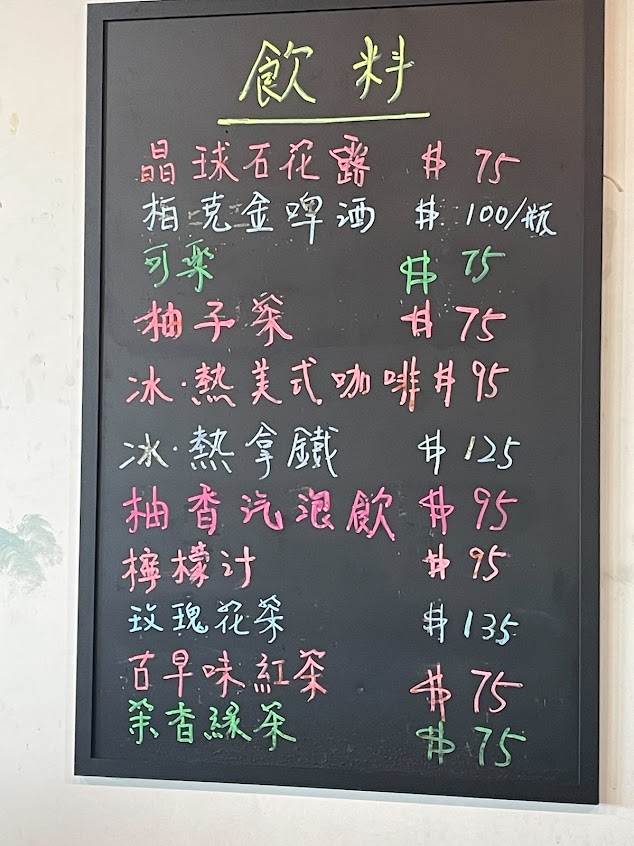 飲料
晶球石花露 $75
柏克金啤酒 $100/瓶
可樂 $75
柚子茶 $75
冰·熱美式咖啡 $95
冰·熱拿鐵 $125
柚香汽泡飲 $95
檸檬汁 $95
玫瑰花茶 $135
古早味紅茶 $75
茶香綠茶 $75